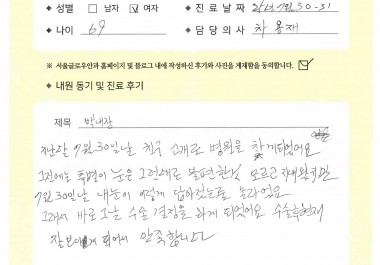 ◆ 성별 □ 남자 ☑ 여자 ◆ 진료날짜 7월30-31
◆ 나이 69 ◆ 담당의사 차용재
※ 서울글로우안과 홈페이지 및 블로그 내에 작성하신 후기와 사진을 게재함을 동의합니다. ☑
◆ 내원 동기 및 진료 후기
제목 : 백내장
지난달 7월30일날 친구 소개로 병원을 찾게되었어요
그전에는 특별히 눈은 그런대로 불편한점 모르고 지내왔지만
7월30일날 내눈이 이렇게 나빠졌는줄 몰라었요
그래서 바로 그날 수술 결정을 하게 되었어요 수술후현재
잘보이게 되어서 만족합니다